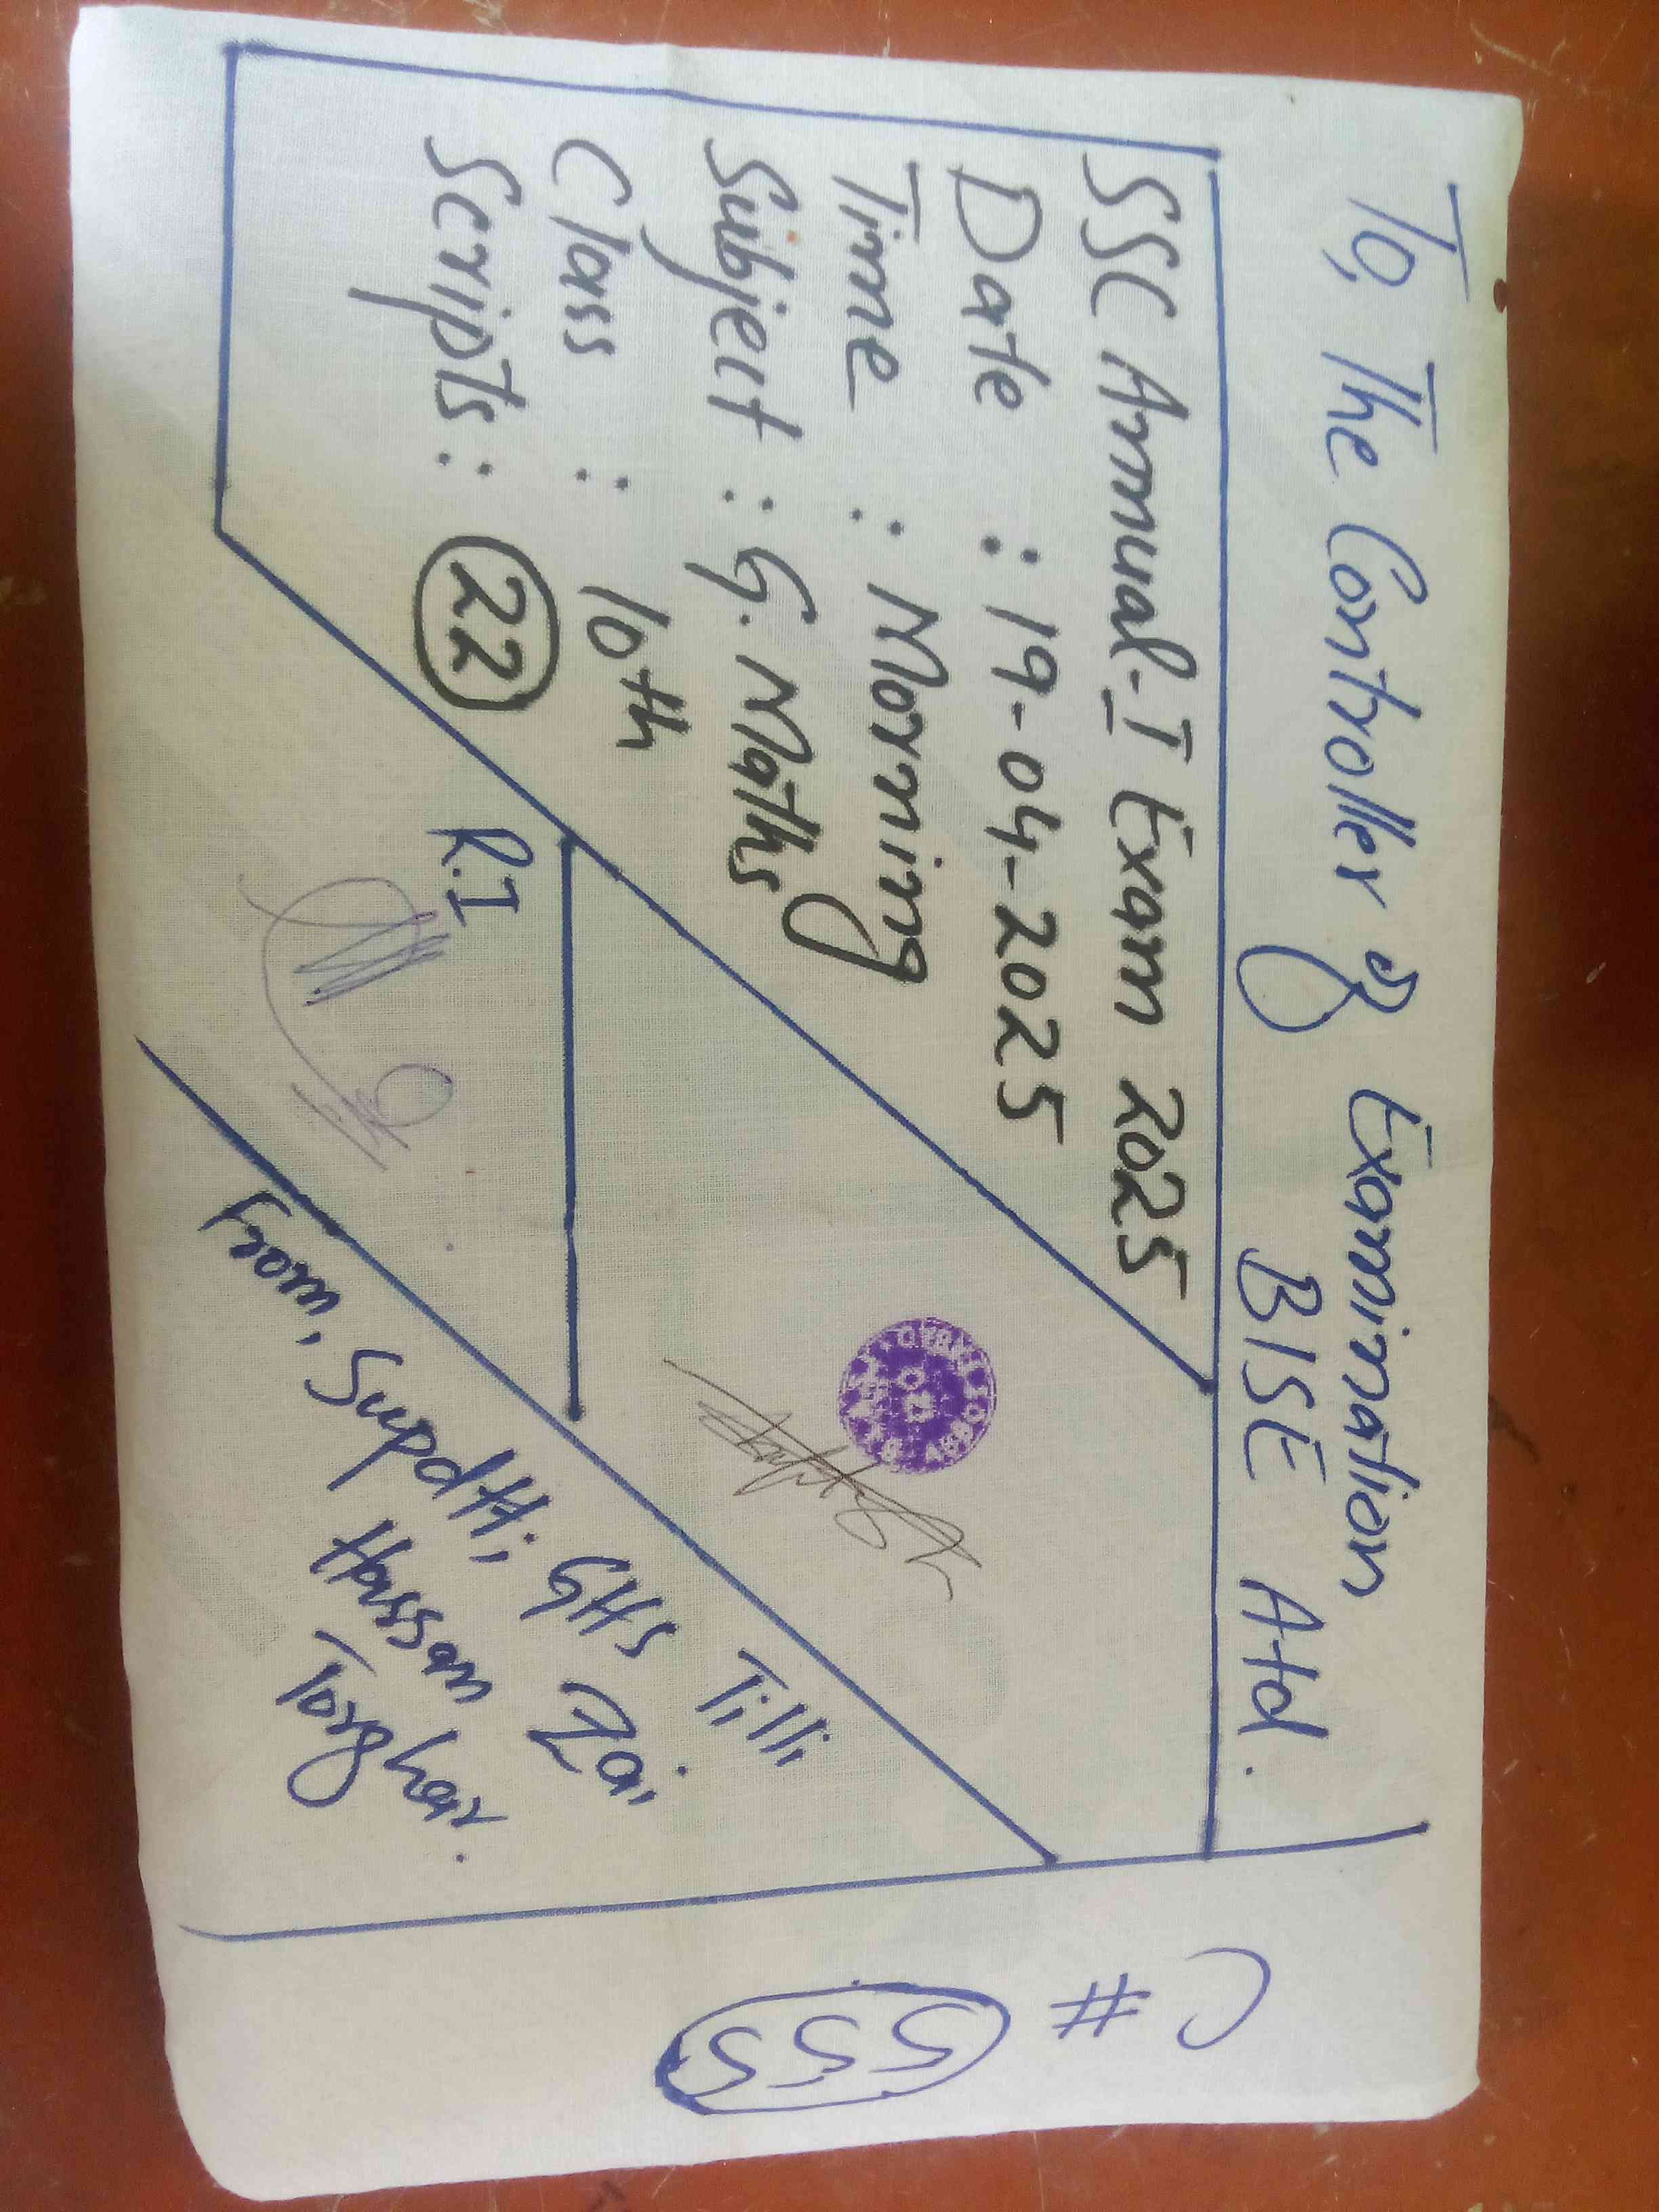 To, The Controller of Examination
BISE Atd.
SSC Annual-I Exam 2025
Date : 19-04-2025
Time : Morning
Subject : G. Maths
Class : 10th
Scripts : 22
R.I
From, Supdtt; GHS Tilli
Hassan Zai
Torghar.
C # 555